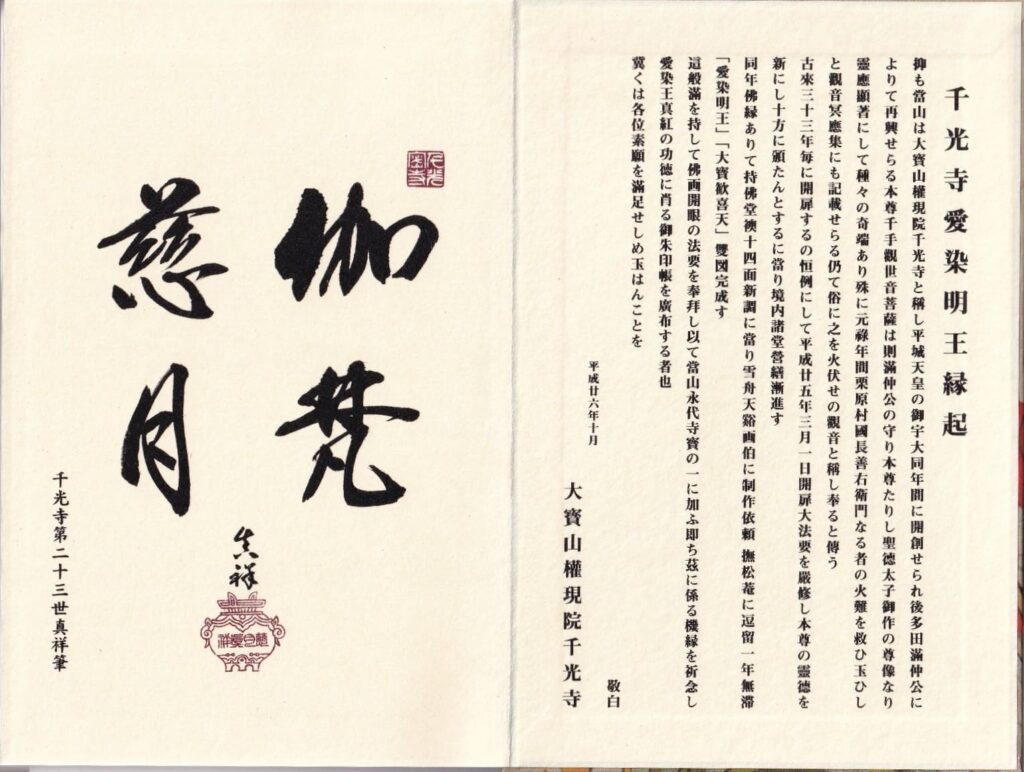 千光寺愛染明王縁起
抑も當山は大寶山權現院千光寺と稱し平城天皇の御宇大同年間に開創せられ後多田滿仲公に
よりて再興せらる本尊千手觀世音菩薩は則滿仲公の守り本尊たりし聖德太子御作の尊像なり
靈應顯著にして種々の奇端あり殊に元祿年間栗原村國長善右衛門なる者の火難を救ひ玉ひし
と觀音冥應集にも記載せらる仍て俗に之を火伏せの觀音と稱し奉ると傳う
古來三十三年毎に開扉するの恒例にして平成廿五年三月一日開扉大法要を嚴修し本尊の靈德を
新にし十方に頒たんとするに當り境内諸堂營繕漸進す
同年佛緣ありて持佛堂襖十四面新調に當り雪舟天谿画伯に制作依頼 撫松菴に逗留一年無滞
「愛染明王」「大寶歓喜天」雙図完成す
這般滿を持して佛画開眼の法要を奉拜し以て當山永代寺寶の一に加ふ即ち玆に係る機縁を祈念し
愛染王真紅の功德に肖る御朱印帳を廣布する者也
冀くは各位素願を滿足せしめ玉はんことを
敬白
平成廿六年十月
大寶山權現院千光寺
伽梵
慈月
真祥
千光寺第二十三世真祥筆